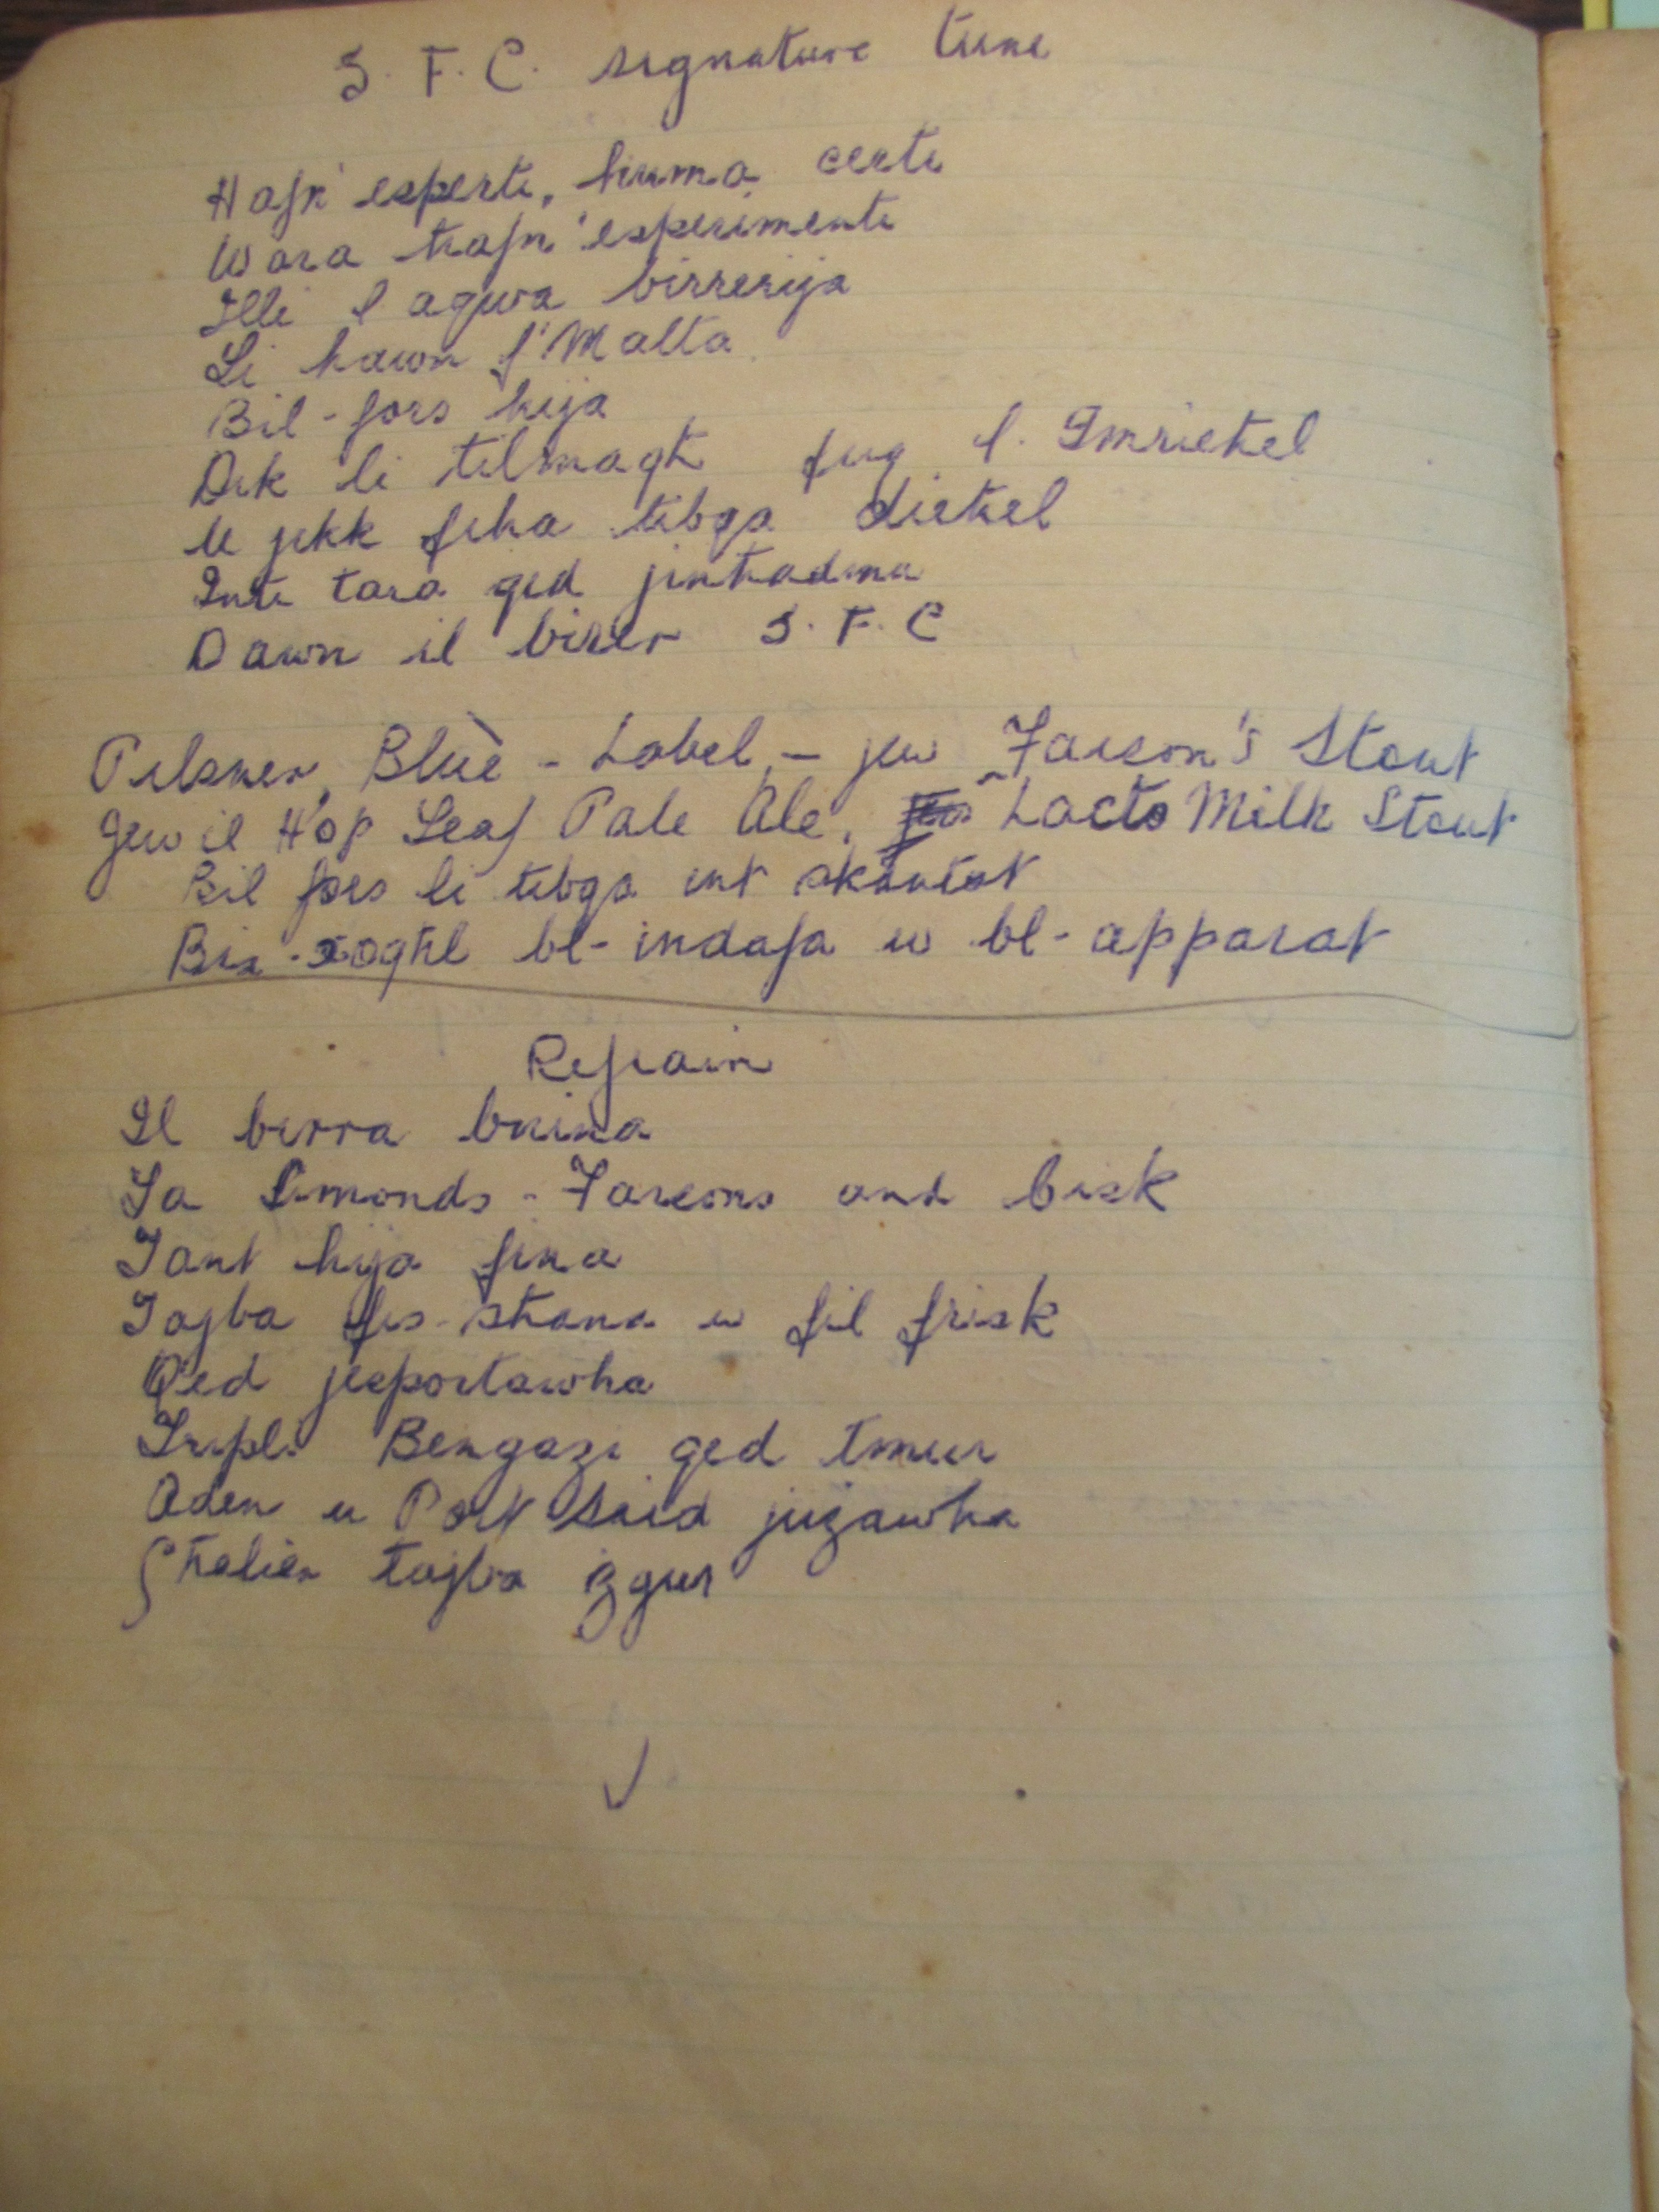 S. F. C. signature tune
Hafn' esperti, huma certi
Wara hafn' esperimenti
Illi l aqwa birrerija
Li hawn f'Malta
Bil-fors hija
Dik li tilmagħ fuq l. Imriehel
U jekk fiha tibqa dieħel
Inti tara qed jinħadmu
Dawn il birer S. F. C
Pilsner, Blue - Label, - jew Farson's Stout
Jew il Hop Leaf Pale Ale, Lacto Milk Stout
Bil fors li tibqa int skantat
Bix-xogħl bl-indafa u bl-apparat
Refrain
Il birra bnina
Ta Simonds - Farsons and Cisk
Tant hija fina
Tajba fis-shana u fil frisk
Qed jesportawha
Tripli Bengazi qed tmur
Aden u Port Said jużawha
Għaliex tajba żgur